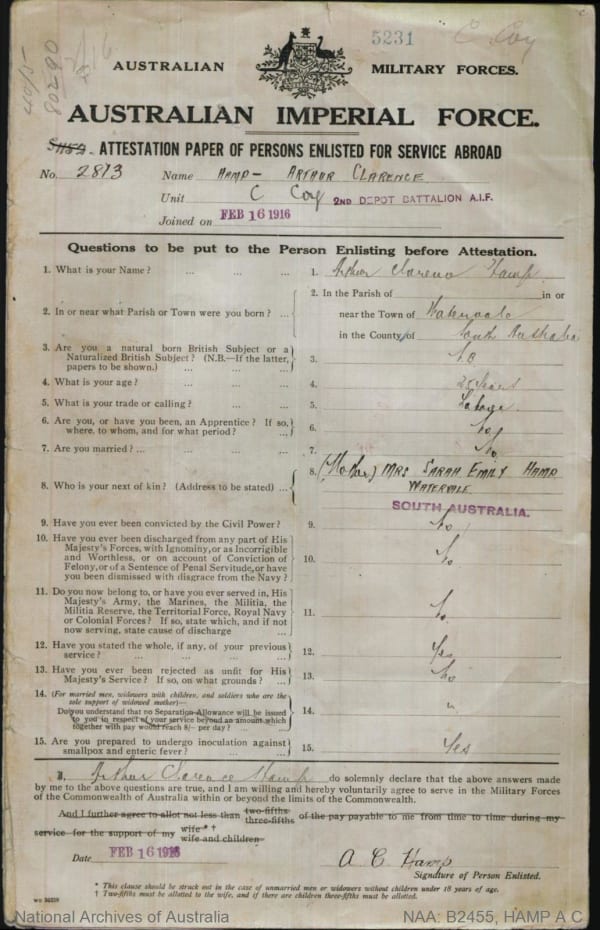 5231
C. Coy
AUSTRALIAN MILITARY FORCES.
AUSTRALIAN IMPERIAL FORCE.
ATTESTATION PAPER OF PERSONS ENLISTED FOR SERVICE ABROAD
No. 2813 Name HAMP - ARTHUR CLARENCE
Unit C Coy 2ND DEPOT BATTALION A.I.F.
Joined on FEB 16 1916
Questions to be put to the Person Enlisting before Attestation.
1. What is your Name? ... ... ... 1. Arthur Clarence Hamp
2. In or near what Parish or Town were you born? ... 2. In the Parish of in or
near the Town of Watervale
in the County of South Australia
3. Are you a natural born British Subject or a
Naturalized British Subject? (N.B.—If the latter,
papers to be shown.) ... ... 3.
4. What is your age? ... ... 4. 25 years
5. What is your trade or calling? ... ... 5. Labourer
6. Are you, or have you been, an Apprentice? If so,
where, to whom, and for what period? ... 6. No
7. Are you married? ... ... ... 7. No
8. Who is your next of kin? (Address to be stated) ... 8. (Mother) MRS SARAH EMILY HAMP
WATERVALE
SOUTH AUSTRALIA.
9. Have you ever been convicted by the Civil Power? 9. No
10. Have you ever been discharged from any part of His
Majesty's Forces, with Ignominy, or as Incorrigible
and Worthless, or on account of Conviction of
Felony, or of a Sentence of Penal Servitude, or have
you been dismissed with disgrace from the Navy? 10. No
11. Do you now belong to, or have you ever served in, His
Majesty's Army, the Marines, the Militia, the
Militia Reserve, the Territorial Force, Royal Navy
or Colonial Forces? If so, state which, and if not
now serving, state cause of discharge ... 11. No
12. Have you stated the whole, if any, of your previous
service? ... ... ... 12. Yes
13. Have you ever been rejected as unfit for His
Majesty's Service? If so, on what grounds? ... 13. No
14. (For married men, widowers with children, and soldiers who are the
sole support of widowed mother)—
Do you understand that no Separation Allowance will be issued
to you in respect of your service beyond an amount which
together with pay would reach 8/- per day? ... 14. "
15. Are you prepared to undergo inoculation against
smallpox and enteric fever? ... ... 15. Yes
I, Arthur Clarence Hamp do solemnly declare that the above answers made
by me to the above questions are true, and I am willing and hereby voluntarily agree to serve in the Military Forces
of the Commonwealth of Australia within or beyond the limits of the Commonwealth.
And I further agree to allot not less than two-fifths three-fifths of the pay payable to me from time to time during my
service for the support of my wife * † wife and children
Date FEB 16 1916 A. C. Hamp
Signature of Person Enlisted.
* This clause should be struck out in the case of unmarried men or widowers without children under 18 years of age.
† Two-fifths must be allotted to the wife, and if there are children three-fifths must be allotted.
National Archives of Australia NAA: B2455, HAMP A C